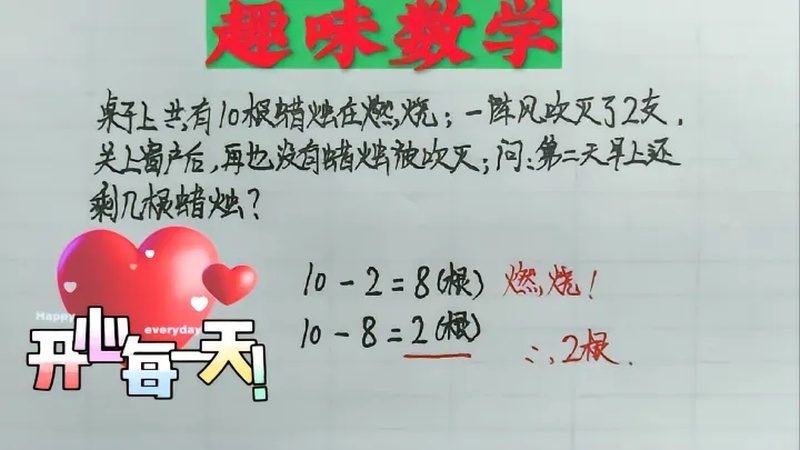 趣味数学
桌子上共有10根蜡烛在燃烧；一阵风吹灭了2支，
关上窗户后，再也没有蜡烛被吹灭；问：第二天早上还
剩几根蜡烛？
10-2=8(根) 燃烧！
10-8=2(根)
∴2根.
Happy
everyday
开心每一天!